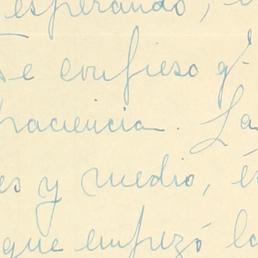 esperando,
Te confieso q'
paciencia. La
es y medio, é
que empezó la